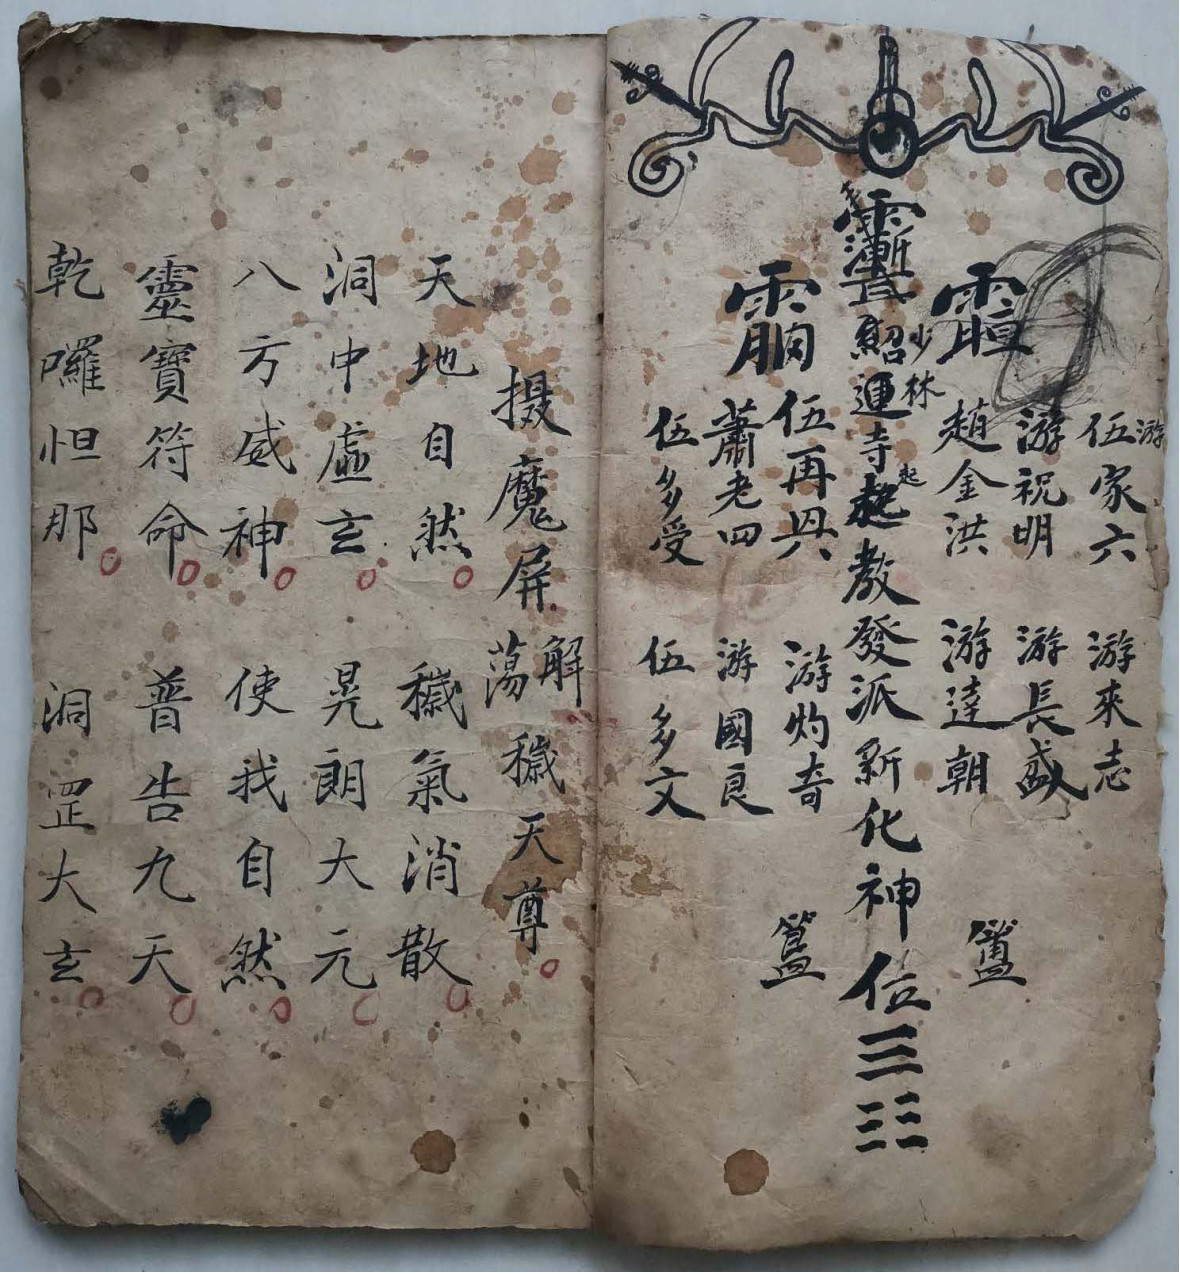 伍家六 游來志
游
游祝明 游長盛
趙金洪 游達朝
紹運寺起教發派新化神位三
少林
起
伍再興 游灼奇
蕭老四 游國良
伍多受 伍多文
摄魔屏蕩穢天尊
解
天地自然 穢氣消散
洞中虛玄 晃朗大元
八方威神 使我自然
靈寶符命 普告九天
乾囉怛那 洞罡大玄